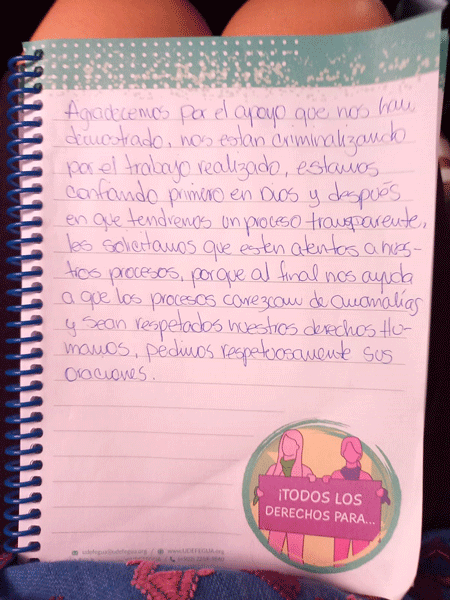 Agradecemos por el apoyo que nos han
demostrado, nos están criminalizando
por el trabajo realizado, estamos
confiando primero en Dios y después
en que tendremos un proceso transparente,
les solicitamos que esten atentos a nues-
tros procesos, porque al final nos ayuda
a que los procesos carezcan de anomalías
y sean respetados nuestros derechos Hu-
manos, pedimos respetuosamente sus
oraciones.
¡TODOS LOS
DERECHOS PARA...